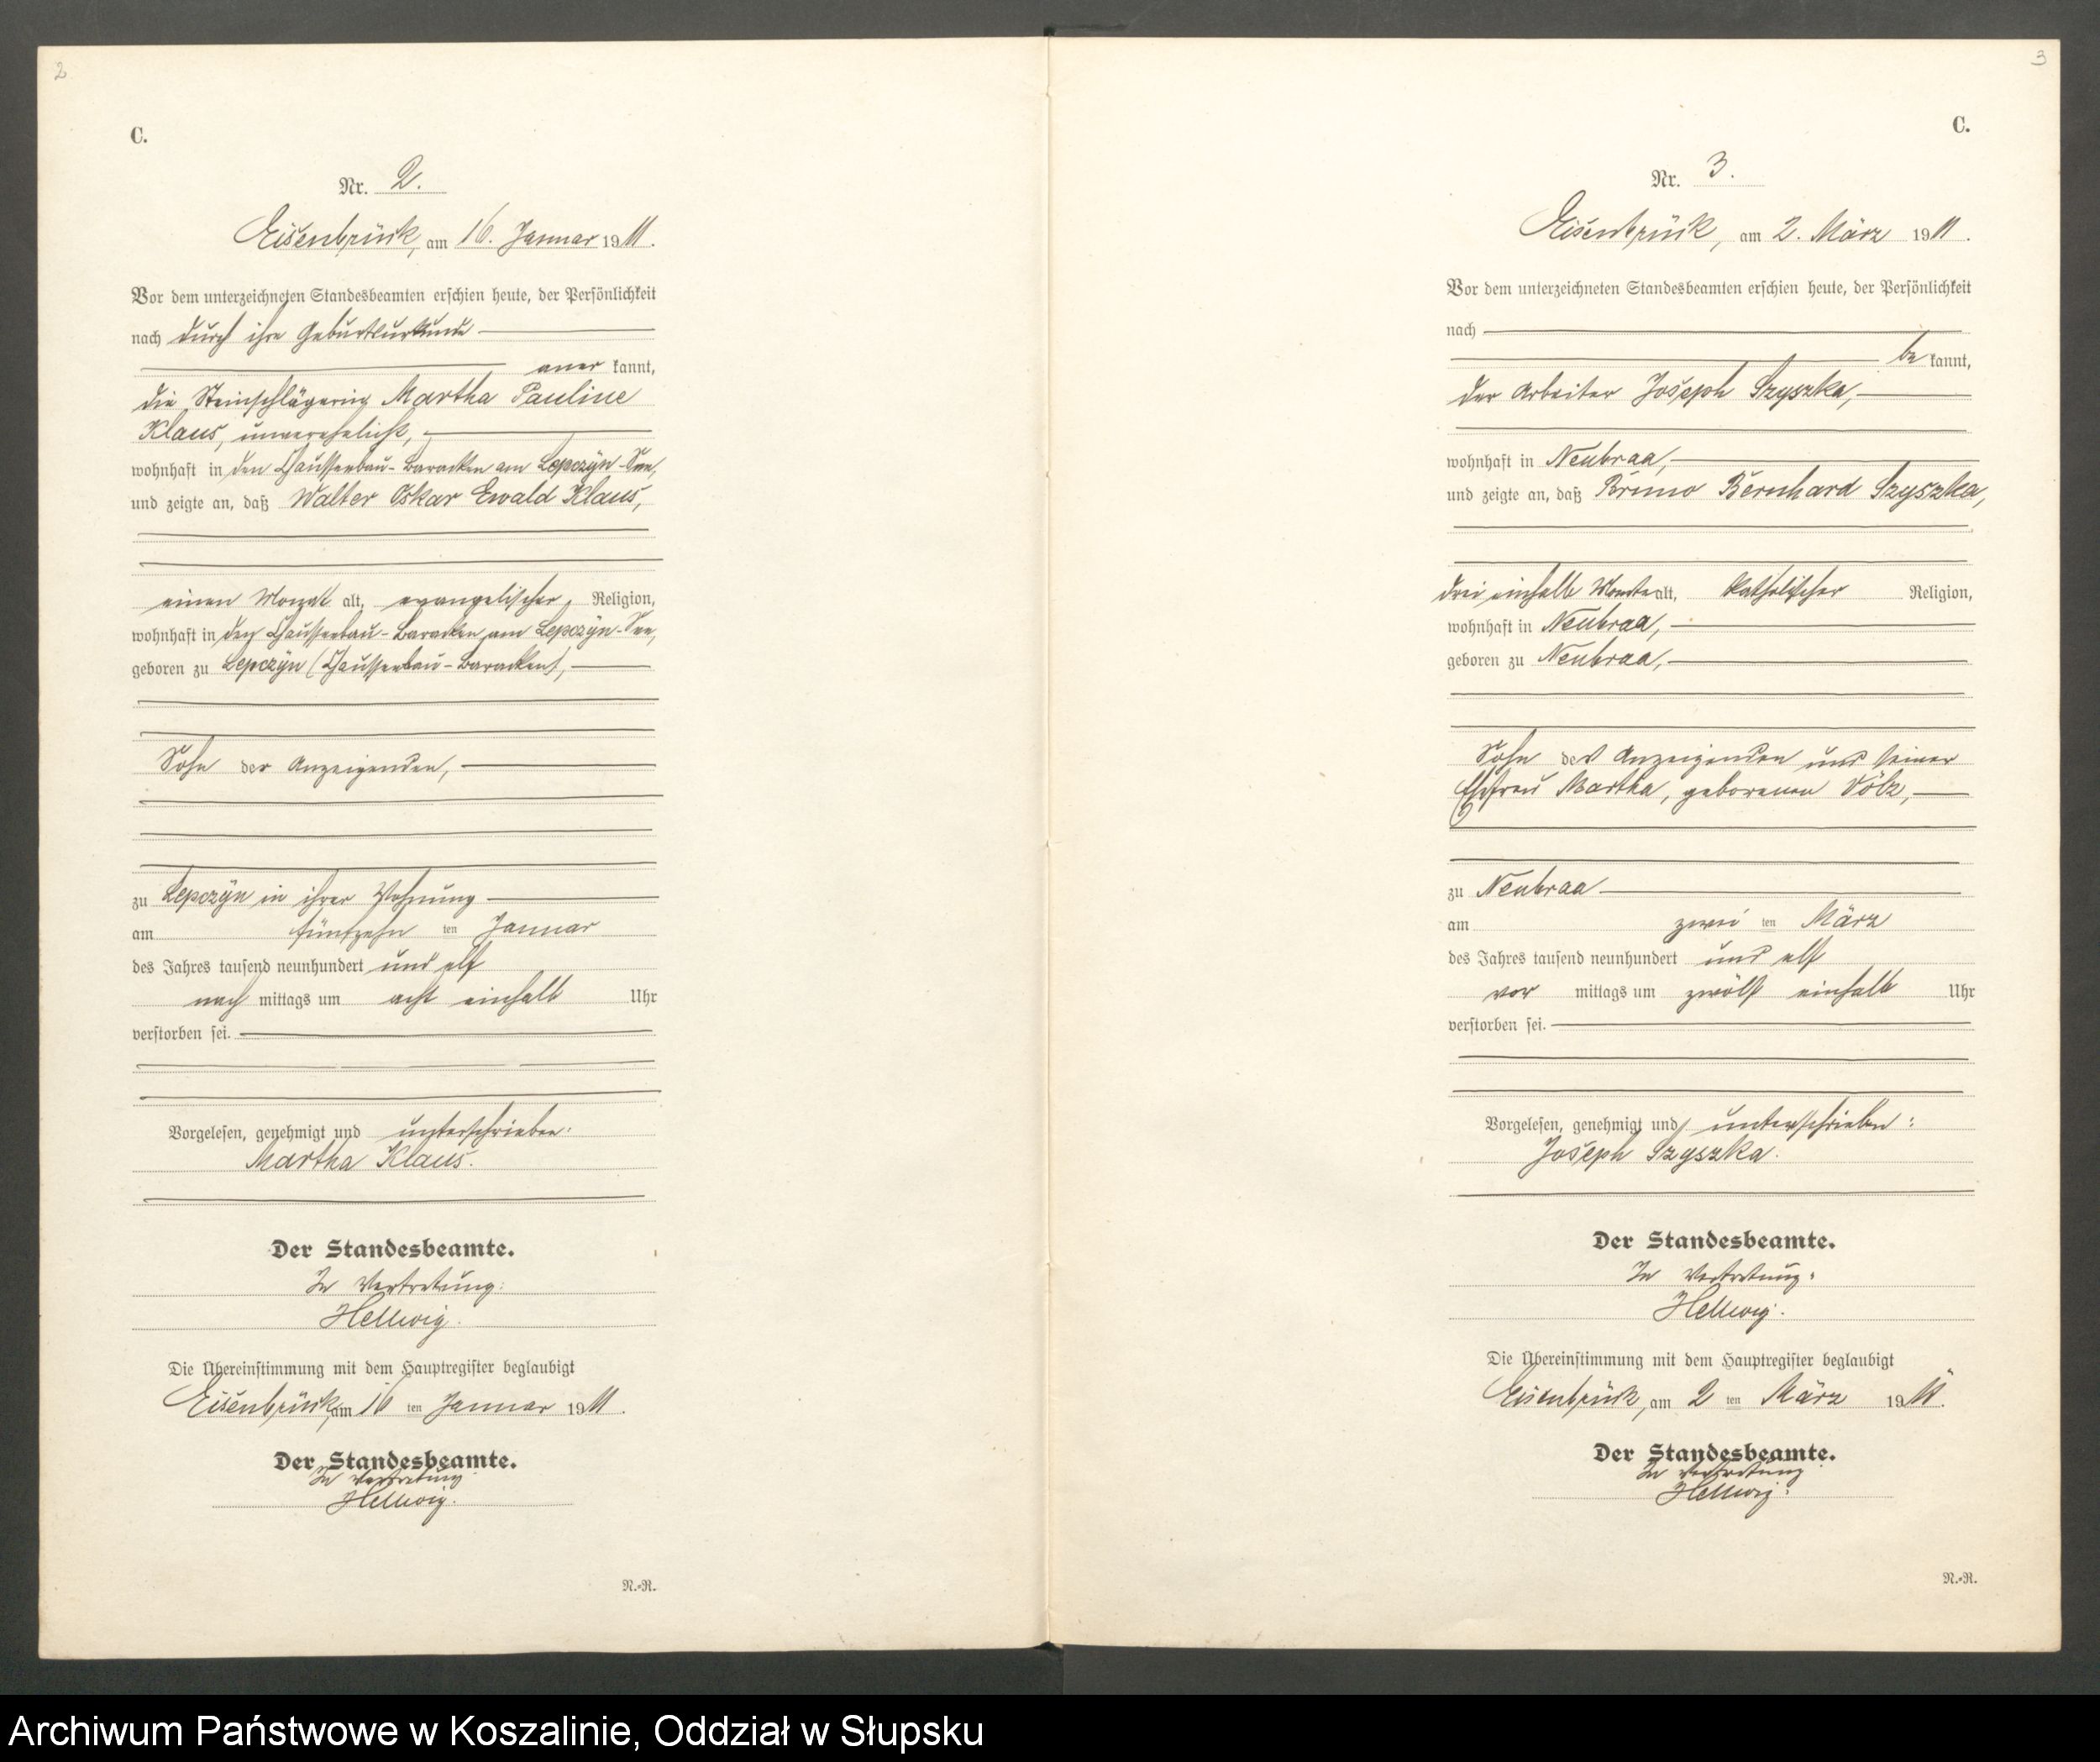 2
C.
Nr. 2.
Eisenbrück, am 16. Januar 1911.
Vor dem unterzeichneten Standesbeamten erschien heute, der Persönlichkeit
nach durch ihre Geburtsurkunde
aner kannt,
die Steinschlägerin Martha Pauline
Klaus, unverehelicht,
wohnhaft in den Chausseebau-Baracken am Lepczyn-See,
und zeigte an, daß Walter Oskar Ewald Klaus,
einen Monat alt, evangelischer Religion,
wohnhaft in den Chausseebau-Baracken am Lepczyn-See,
geboren zu Lepczyn (Chausseebau-Baracken),
Sohn der Anzeigenden,
zu Lepczyn in ihrer Wohnung
am fünfzehn ten Januar
des Jahres tausend neunhundert und elf
nach mittags um acht einhalb Uhr
verstorben sei.
Vorgelesen, genehmigt und unterschrieben:
Martha Klaus.
Der Standesbeamte.
In Vertretung:
Hellwig.
Die Übereinstimmung mit dem Hauptregister beglaubigt
Eisenbrück, am 16 ten Januar 1911.
Der Standesbeamte.
In Vertretung
Hellwig.
N.-R.
3
C.
Nr. 3.
Eisenbrück, am 2. März 1911.
Vor dem unterzeichneten Standesbeamten erschien heute, der Persönlichkeit
nach
be kannt,
der Arbeiter Joseph Szyszka,
wohnhaft in Neubraa,
und zeigte an, daß Bruno Bernhard Szyszka,
drei einhalb Monate alt, katholischer Religion,
wohnhaft in Neubraa,
geboren zu Neubraa,
Sohn des Anzeigenden und seiner
Ehefrau Martha, geborenen Völz,
zu Neubraa
am zwei ten März
des Jahres tausend neunhundert und elf
vor mittags um zwölf einhalb Uhr
verstorben sei.
Vorgelesen, genehmigt und unterschrieben:
Joseph Szyszka.
Der Standesbeamte.
In Vertretung:
Hellwig.
Die Übereinstimmung mit dem Hauptregister beglaubigt
Eisenbrück, am 2 ten März 1911.
Der Standesbeamte.
In Vertretung
Hellwig.
N.-R.
Archiwum Państwowe w Koszalinie, Oddział w Słupsku